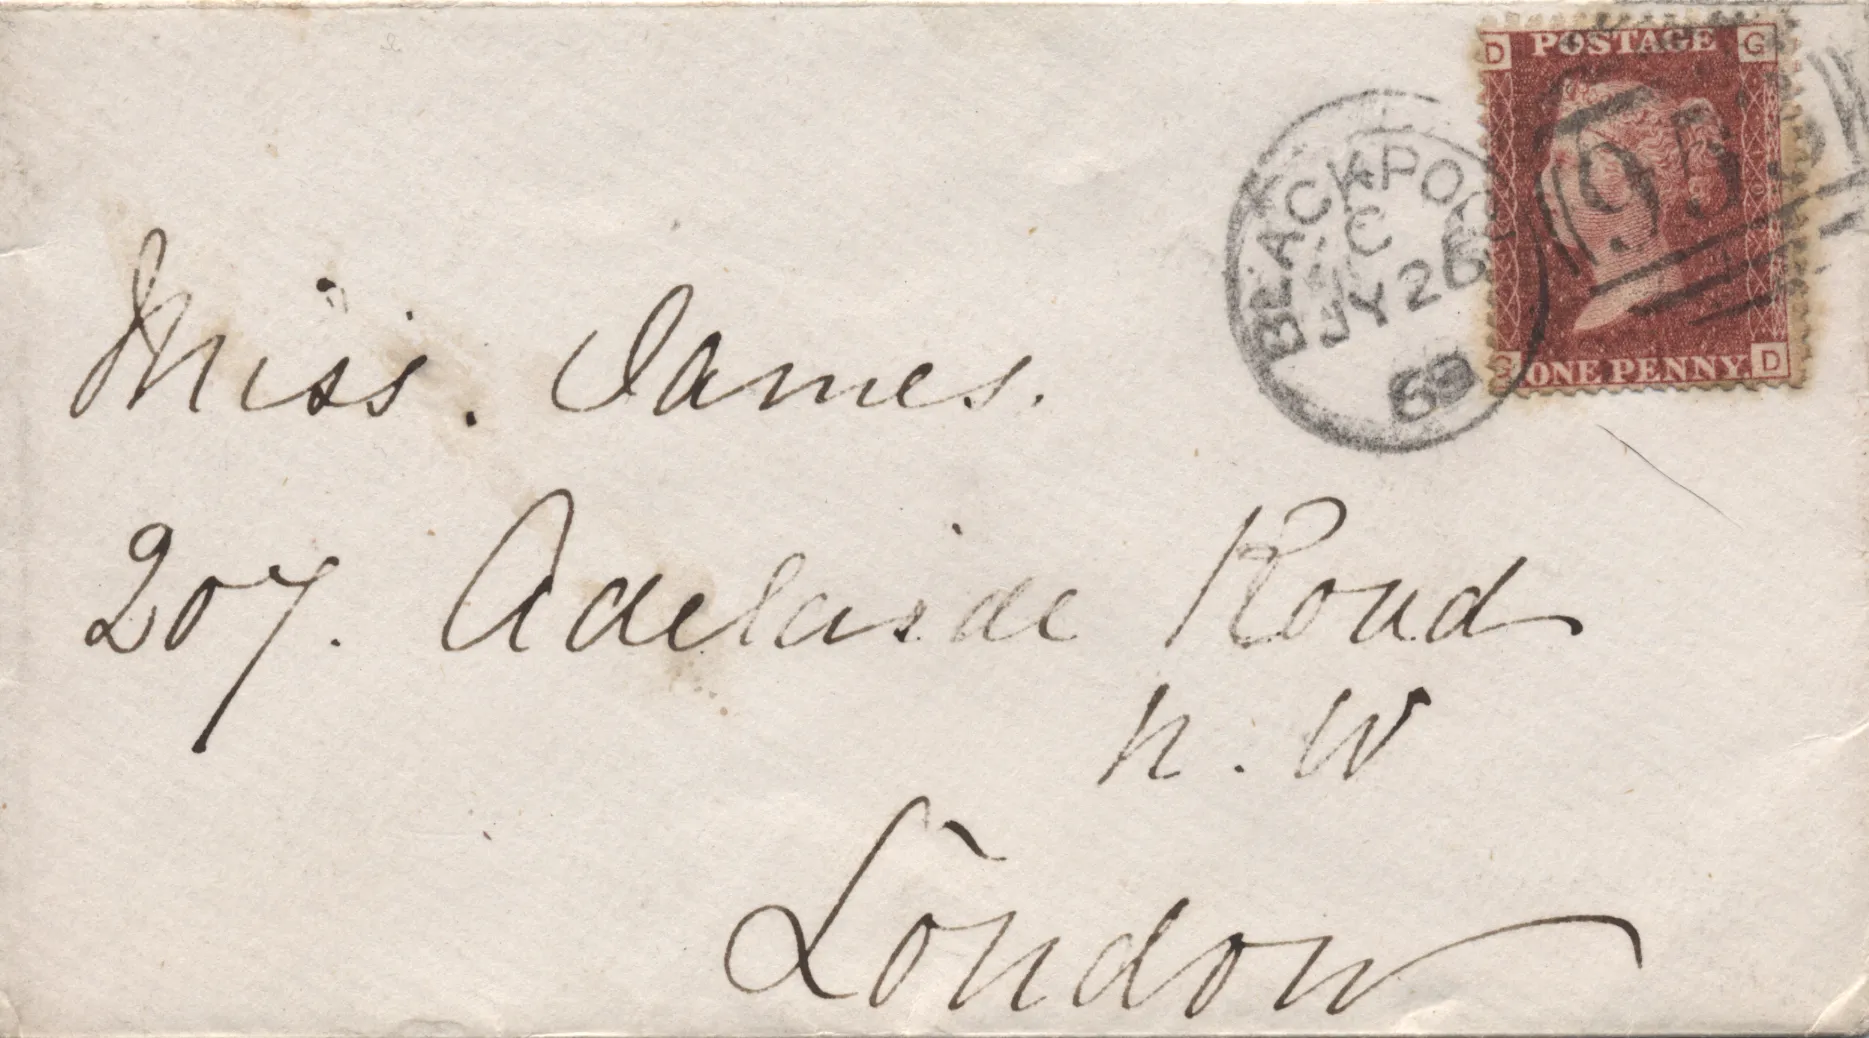 D POSTAGE G
BLACKPOOL
C
JY 26
69
G ONE PENNY D
Miss. James.
207. Adelaide Road
N. W
London